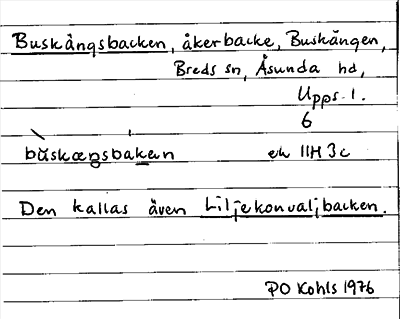 Buskängsbacken, åkerbacke, Buskängen,
Breds sn, Åsunda hd,
Upps. l.
6
bùskæŋsbakɐn ek IIH 3c
Den kallas även Liljekonvaljbacken.
PO Kohls 1976